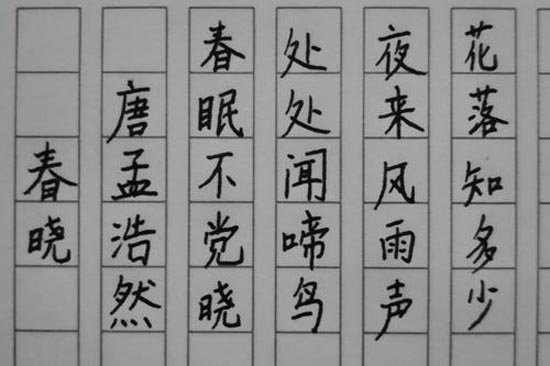 春晓
唐孟浩然
春眠不党晓
处处闻啼鸟
夜来风雨声
花落知多少